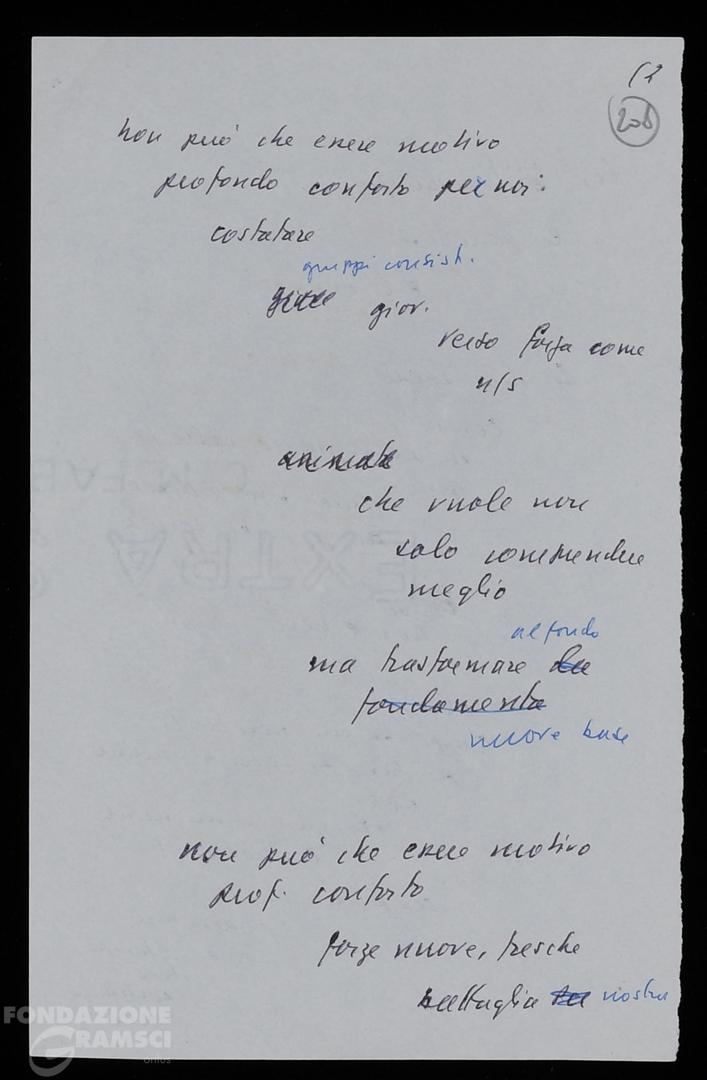 12
206
non può che essere motivo
profondo conforto per noi:
costatare
gruppi consist.
giov.
verso forza come
n/s
animata
che vuole non
solo comprendere
meglio
al fondo
ma trasformare da
fondamenta
nuove base
non può che essere motivo
prof. conforto
forze nuove, fresche
battaglia nostra
EXTRA
FONDAZIONE
GRAMSCI
onlus